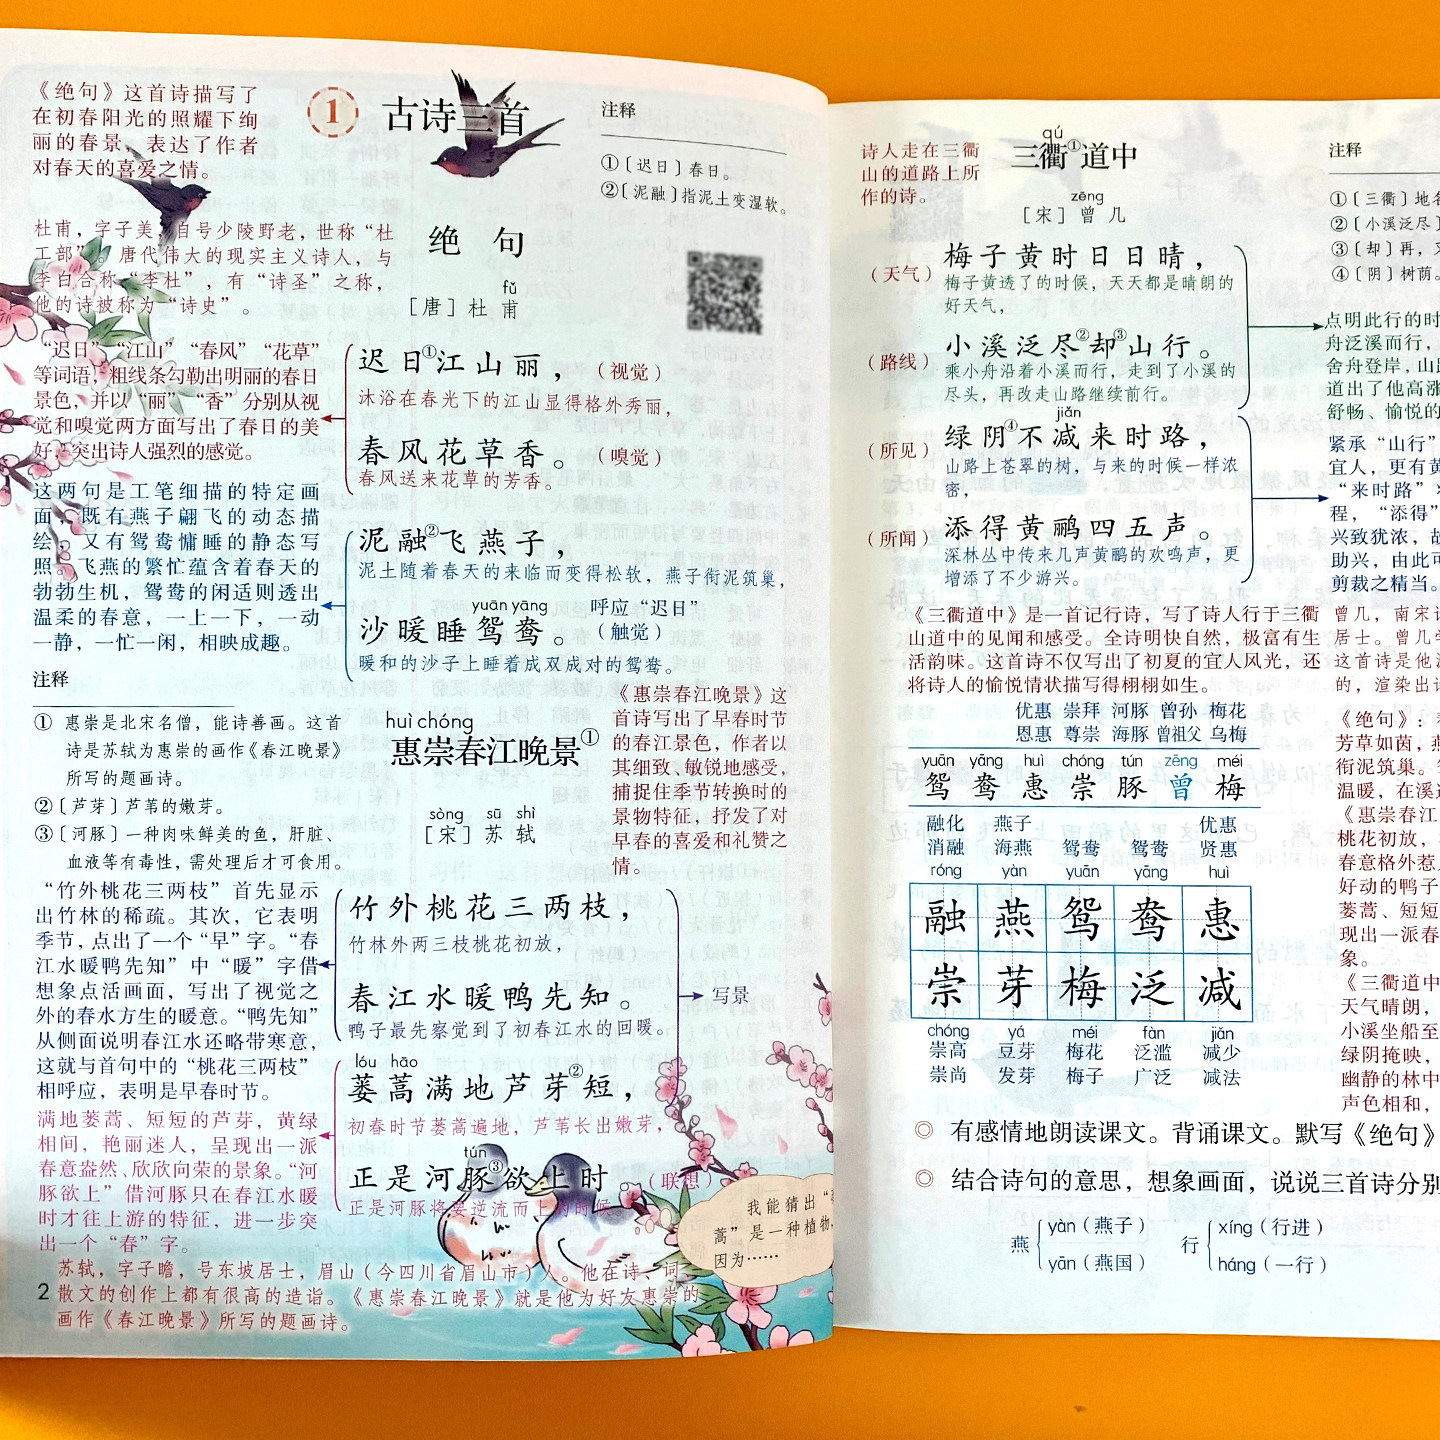 《绝句》这首诗描写了
在初春阳光的照耀下绚
丽的春景，表达了作者
对春天的喜爱之情。
1
古诗三首
注释
①〔迟日〕春日。
②〔泥融〕指泥土变湿软。
杜甫，字子美，自号少陵野老，世称“杜
工部”。唐代伟大的现实主义诗人，与
李白合称“李杜”，有“诗圣”之称，
他的诗被称为“诗史”。
绝 句
fǔ
［唐］杜 甫
“迟日”“江山”“春风”“花草”
等词语，粗线条勾勒出明丽的春日
景色，并以“丽”“香”分别从视
觉和嗅觉两方面写出了春日的美
好，突出诗人强烈的感觉。
迟日①江山丽，（视觉）
沐浴在春光下的江山显得格外秀丽，
春风花草香。（嗅觉）
春风送来花草的芳香。
这两句是工笔细描的特定画
面，既有燕子翩飞的动态描
绘，又有鸳鸯慵睡的静态写
照。飞燕的繁忙蕴含着春天的
勃勃生机，鸳鸯的闲适则透出
温柔的春意，一上一下，一动
一静，一忙一闲，相映成趣。
泥融②飞燕子，
泥土随着春天的来临而变得松软，燕子衔泥筑巢，
yuān yāng
呼应“迟日”
沙暖睡鸳鸯。（触觉）
暖和的沙子上睡着成双成对的鸳鸯。
注释
① 惠崇是北宋名僧，能诗善画。这首
诗是苏轼为惠崇的画作《春江晚景》
所写的题画诗。
②〔芦芽〕芦苇的嫩芽。
③〔河豚〕一种肉味鲜美的鱼，肝脏、
血液等有毒性，需处理后才可食用。
huì chóng
惠崇春江晚景①
sòng sū shì
［宋］苏 轼
《惠崇春江晚景》这
首诗写出了早春时节
的春江景色，作者以
其细致、敏锐地感受，
捕捉住季节转换时的
景物特征，抒发了对
早春的喜爱和礼赞之
情。
“竹外桃花三两枝”首先显示
出竹林的稀疏。其次，它表明
季节，点出了一个“早”字。“春
江水暖鸭先知”中“暖”字借
想象点活画面，写出了视觉之
外的春水方生的暖意。“鸭先知”
从侧面说明春江水还略带寒意，
这就与首句中的“桃花三两枝”
相呼应，表明是早春时节。
竹外桃花三两枝，
竹林外两三枝桃花初放，
春江水暖鸭先知。
鸭子最先察觉到了初春江水的回暖。
写景
满地蒌蒿、短短的芦芽，黄绿
相间，艳丽迷人，呈现出一派
春意盎然、欣欣向荣的景象。“河
豚欲上”借河豚只在春江水暖
时才往上游的特征，进一步突
出一个“春”字。
lóu hāo
蒌蒿满地芦芽②短，
初春时节蒌蒿遍地，芦苇长出嫩芽，
tún
正是河豚③欲上时。（联想）
正是河豚将要逆流而上的时候
我能猜出“
蒿”是一种植物，
因为……
苏轼，字子瞻，号东坡居士，眉山（今四川省眉山市）人。他在诗、词
散文的创作上都有很高的造诣。《惠崇春江晚景》就是他为好友惠崇的
画作《春江晚景》所写的题画诗。
2
诗人走在三衢
山的道路上所
作的诗。
qú
三衢①道中
zēng
［宋］曾 几
注释
①〔三衢〕地名
②〔小溪泛尽〕
③〔却〕再，又
④〔阴〕树荫。
（天气）梅子黄时日日晴，
梅子黄透了的时候，天天都是晴朗的
好天气，
（路线）小溪泛尽②却③山行。
乘小舟沿着小溪而行，走到了小溪的
尽头，再改走山路继续前行。
jiǎn
（所见）绿阴④不减来时路，
山路上苍翠的树，与来的时候一样浓
密，
（所闻）添得黄鹂四五声。
深林丛中传来几声黄鹂的欢鸣声，更
增添了不少游兴。
点明此行的时
舟泛溪而行，
舍舟登岸，山路
道出了他高涨
舒畅、愉悦的
紧承“山行”
宜人，更有黄
“来时路”
程，“添得”
兴致犹浓，故
助兴，由此可
剪裁之精当。
《三衢道中》是一首记行诗，写了诗人行于三衢
山道中的见闻和感受。全诗明快自然，极富有生
活韵味。这首诗不仅写出了初夏的宜人风光，还
将诗人的愉悦情状描写得栩栩如生。
曾几，南宋诗
居士。曾几学
这首诗是他游
的，渲染出诗
优惠 崇拜 河豚 曾孙 梅花
恩惠 尊崇 海豚 曾祖父 乌梅
yuān yāng huì chóng tún zēng méi
鸳 鸯 惠 崇 豚 曾 梅
融化 燕子 优惠
消融 海燕 鸳鸯 鸳鸯 贤惠
róng yàn yuān yāng huì
融 燕 鸳 鸯 惠
崇 芽 梅 泛 减
chóng yá méi fàn jiǎn
崇高 豆芽 梅花 泛滥 减少
崇尚 发芽 梅子 广泛 减法
《绝句》：
芳草如茵，燕
衔泥筑巢。
温暖，在溪边
《惠崇春江
桃花初放，
春意格外惹
好动的鸭子
蒌蒿、短短
现出一派春
象。
《三衢道中
天气晴朗，
小溪坐船至
绿阴掩映，
幽静的林中
声色相和，
◎ 有感情地朗读课文。背诵课文。默写《绝句》
◎ 结合诗句的意思，想象画面，说说三首诗分别
燕 yàn（燕子） yān（燕国）
行 xíng（行进） háng（一行）